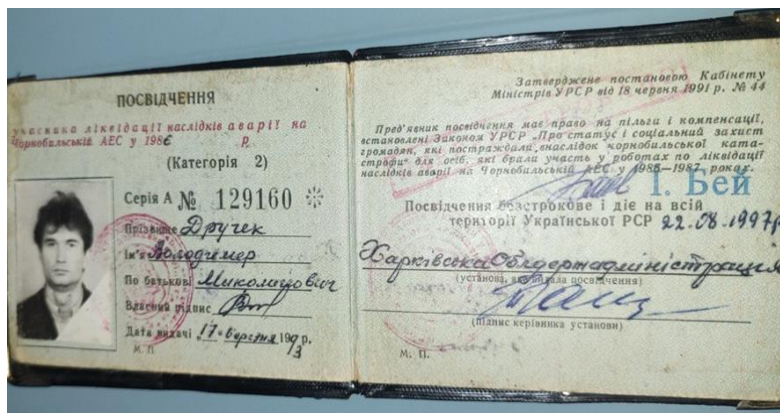 ПОСВІДЧЕННЯ
учасника ліквідації наслідків аварії на
Чорнобильській АЕС у 1986 р.
(Категорія 2)
Серія А № 129160
Прізвище Дручек
Ім'я Володимер
По батькові Миколайович
Власний підпис
Дата видачі 17 березня 1993
М. П.
Затверджене постановою Кабінету
Міністрів УРСР від 18 червня 1991 р. № 44
Пред'явник посвідчення має право на пільги і компенсації,
встановлені Законом УРСР „Про статус і соціальний захист
громадян, які постраждали внаслідок чорнобильської ката-
строфи" для осіб, які брали участь у роботах по ліквідації
наслідків аварії на Чорнобильській АЕС у 1986—1987 роках.
І. Бей
Посвідчення безстрокове і діє на всій
території Української РСР 22.08.1997р
Харківська Облдержадміністрація
(установа, яка видала посвідчення)
(підпис керівника установи)
М. П.